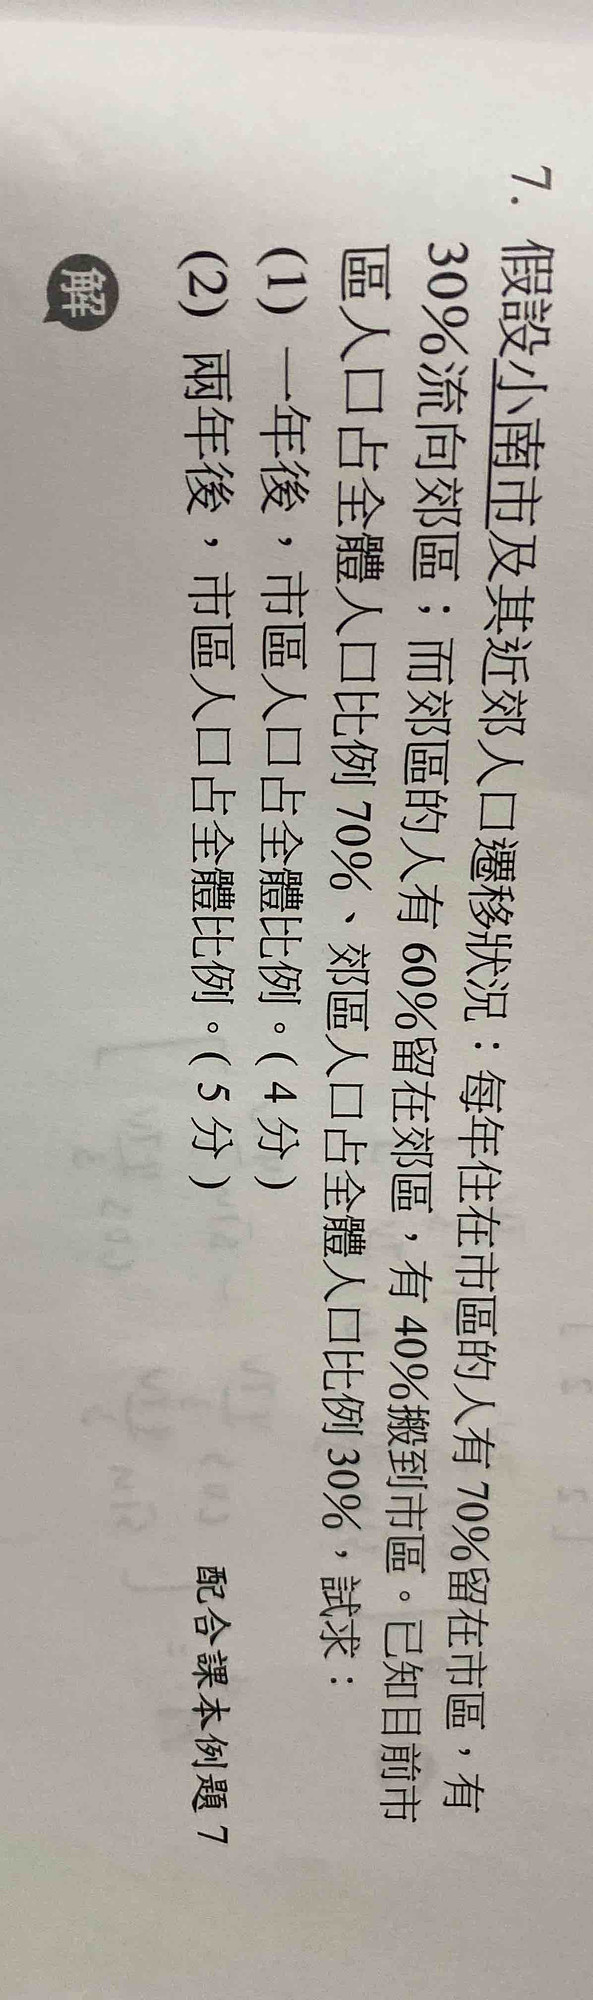 7. 假設小南市及其近郊人口遷移狀況：每年住在市區的人有 70%留在市區，有
30%流向郊區；而郊區的人有 60%留在郊區，有 40%搬到市區。已知目前市
區人口占全體人口比例 70%、郊區人口占全體人口比例 30%，試求：
(1) 一年後，市區人口占全體比例。( 4 分 )
(2) 兩年後，市區人口占全體比例。( 5 分 )
配合課本例題 7
解